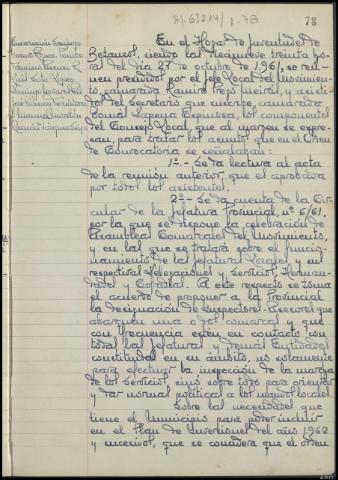 78
En el Hogar de Juventudes de
Betanzos, siendo las diecinueve treinta ho-
ras del día 27 de octubre de 1.961, se reu-
nen presididos por el Jefe Local del Movimien-
to, camarada Ramiro Trepo Meiral, y asisti-
dos del Secretario que suscribe, camarada
Tomás Lapeña Espinosa, los componentes
del Consejo Local, que al margen se expre-
san, para tratar los asuntos que en el Orden
de Convocatoria se señalaban:
1º.- Se da lectura al acta
de la reunión anterior, que es aprobada
por todos los asistentes.
2º.- Se da cuenta de la Cir-
cular de la Jefatura Provincial, nº 6/61,
por la que se dispone la celebración de
Asambleas Comarcales del Movimiento,
y en las que se tratará sobre el funcio-
namiento de las Jefaturas Locales y sus
respectivas Delegaciones y Servicios, Herman-
dades y Cofradías. A este respecto se toma
el acuerdo de proponer a la Provincial
la designación de Inspectores-Asesores que
abarquen una o dos comarcas y que
con frecuencia estén en contacto con
todas las Jefaturas y demás Entidades
constituidas en su ámbito, no solamente
para efectuar la inspección de la marcha
de los Servicios, sino sobre todo para orientar
y dar normas políticas a los mandos locales.
Sobre las necesidades que
tiene el Municipio para poder incluir
en el Plan de Inversiones del año 1.962
y sucesivos, que se considera que el orden